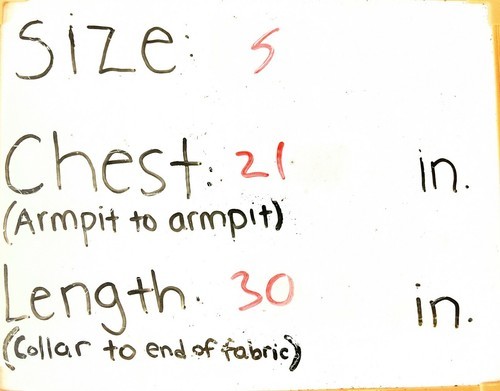 Size: S
Chest: 21 in.
(Armpit to armpit)
Length. 30 in.
(Collar to end of fabric)